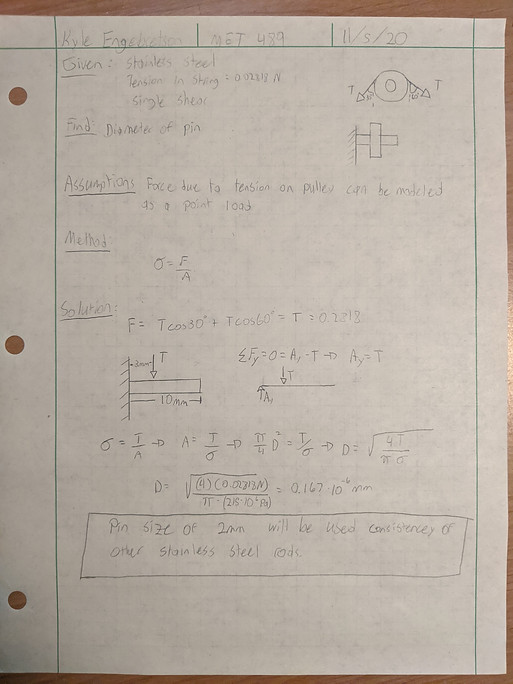 Kyle Engebretson MET 489 11/5/20
Given: Stainless Steel
Tension in String = 0.02818 N
Single shear
T T
Find: Diameter of pin
Assumptions Force due to tension on pulley can be modeled
as a point load
Method:
σ = F/A
Solution:
F = Tcos30° + Tcos60° = T = 0.2818
3mm T ΣFy = 0 = Ay - T → Ay = T
T
10mm Ay
σ = T/A → A = T/σ → π/4 D² = T/σ → D = √(4T/π·σ)
D = √((4)(0.02818N)/π·(215·10⁶Pa)) = 0.167·10⁻⁶ mm
Pin size of 2mm will be used consistency of
other stainless steel rods.